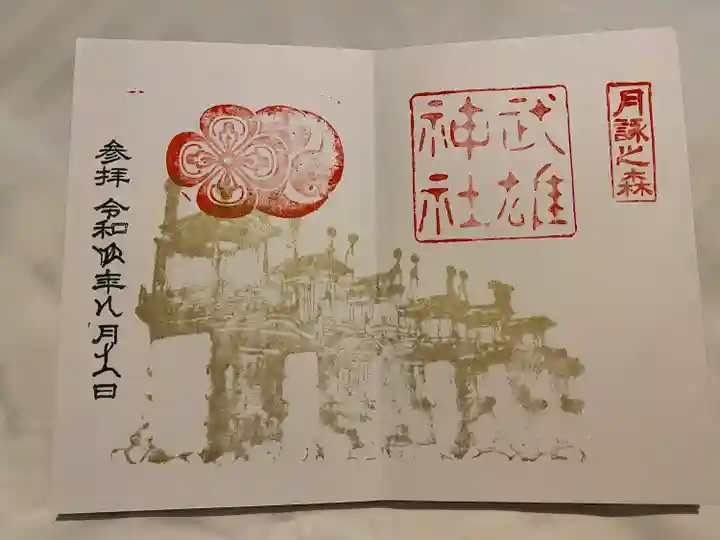 月詠之森
武雄
神社
参拝 令和年八月日